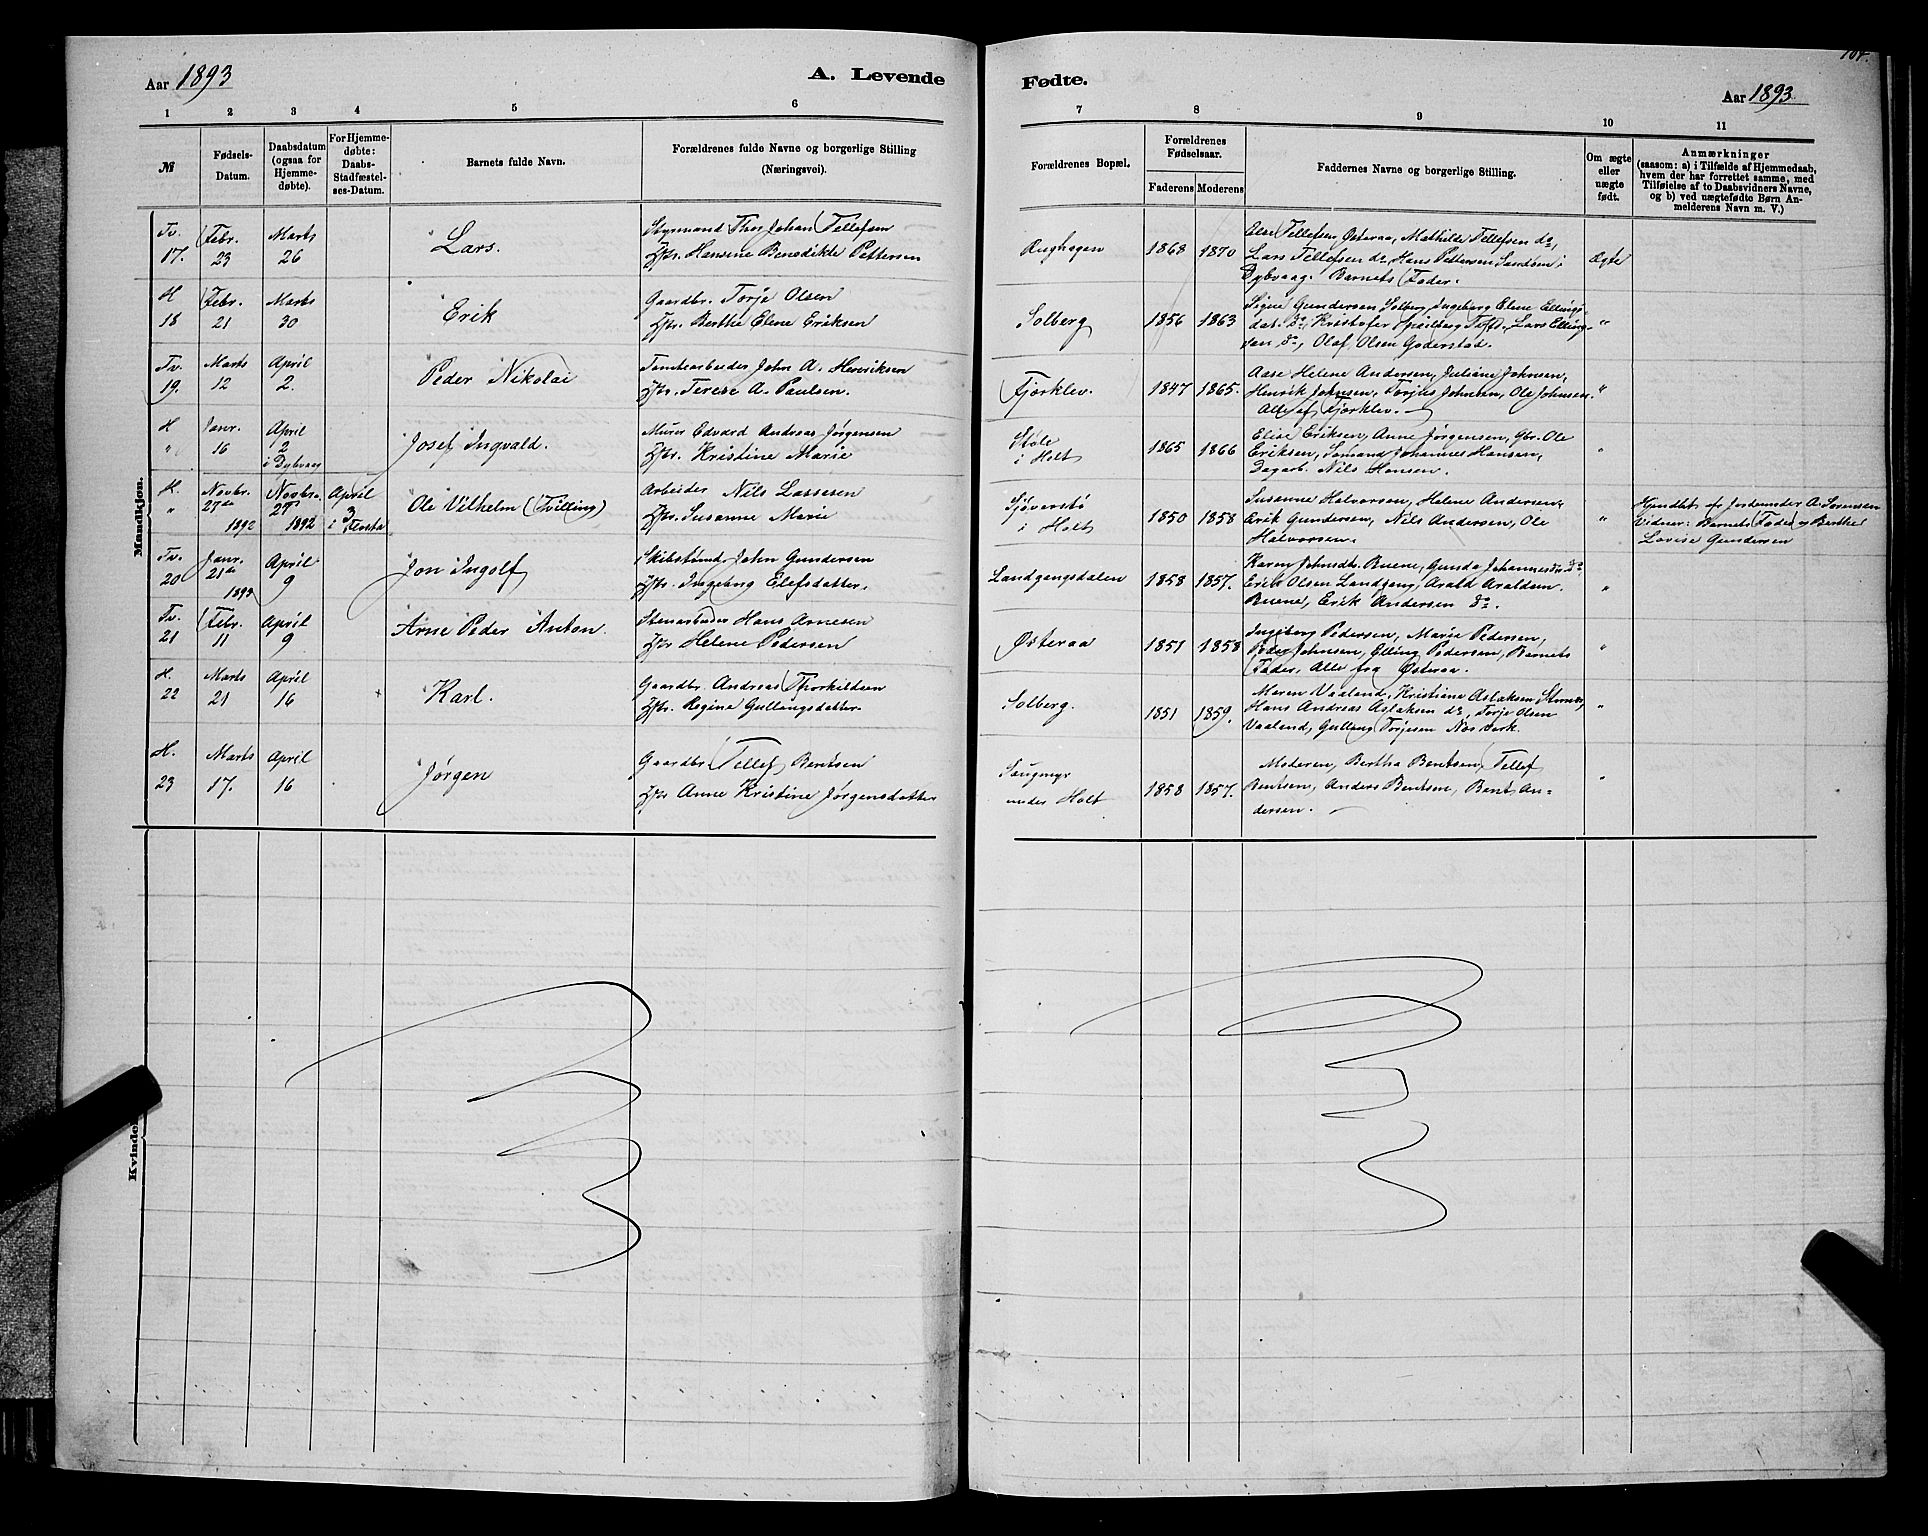 Aar 1893
A. Levende
1 2 3 4 5 6
№
Fødsels-
Datum.
Daabsdatum
(ogsaa for
Hjemme-
døbte).
For Hjemme-
døbte:
Daabs-
Stadfæstel-
ses-Datum.
Barnets fulde Navn.
Forældrenes fulde Navne og borgerlige Stilling
(Næringsvei).
Mandkjøn.
Tv. Febr. Marts Styrmand Thor Johan Tellefsen
17. 23 26 Lars. Hst. Hansine Benedikte Pettersen
H Febr. Marts Gaardbr. Torje Olsen
18 21 30 Erik Hst. Berthe Elene Eriksen
Tv. Marts April Tomtearbeider John A. Henriksen
19. 12 2. Peder Nikolai Hst. Terese A. Paulsen.
H Janr. April Murer Edvard Andreas Jørgensen
" 16 2 Josef Ingvald. Hst. Kristine Marie
i Dybvaag
H. Novbr. Novbr. April Arbeider Nils Lassesen
" 27de 27 3 Ole Vilhelm (Tvilling) Hst. Susanne Marie
1892 1892 i Flosta
Tv. Janr. April Skibstømd. John Gundersen
20 21de 9 Jon Ingolf Hst. Ingeborg Elefsdatter.
1893
Tv. Febr. April Stenarbeider Hans Arnesen
21 11 9 Arne Peder Anton. Hst Helene Pedersen
H. Marts April Gaardbr. Andreas Thorkildsen
22 21 16 Karl. Hst. Regine Gullangsdatter.
H. Marts April Gaardbr. Tellef Bentsen
23 17. 16 Jørgen Hst Anne Kristine Jørgensdatter
Fødte.
Aar 1893.
7 8 9 10 11
Forældrenes Bopæl.
Forældrenes
Fødselsaar.
Faderens Moderens
Faddernes Navne og borgerlige Stilling.
Om ægte
eller
uægte
født.
Anmærkninger
(saasom: a) i Tilfælde af Hjemmedaab,
hvem der har forrettet samme, med
Tilføielse af to Daabsvidners Navne,
og b) ved uægtefødte Børn An-
melderens Navn m. V.)
Else Tellefsen Østeraa, Mathilde Tellefsen do,
1868 1870 Lars Tellefsen do, Hans Pettersen Sandøen i Ægte
Dybvaag. Barnets Fader.
Signe Gundersen Solberg, Ingeborg Elene Ellings-
Solberg 1856 1863 dat. do, Kristofer Tveft, Lars Elling- "
sen do, Olaf Olsen Goderstad.
Aase Helene Andersen, Juliane Johnsen,
Fjorklev. 1847 1865. Henrik Johnsen, Torjus Johnsen, Ole Johnsen. "
Alle af Fjorklev.
Støle Elise Eriksen, Anne Jørgensen, Gbr. Ole
i Holt 1865 1866 Eriksen, Sømand Johannes Hansen, "
Dagarb. Nils Hansen.
Sjøverstø Susanne Halvorsen, Helene Andersen, Hjemdøbt af Jordemoder A. Sørensen
i Holt 1850 1858 Erik Gundersen, Nils Andersen, Ole " Vidner: Barnets Fader og Berthe
Halvorsen. Lovise Gundersen
Karen Johnsdt. Buene, Gunda Johannesdr. do.
Landgangsdalen 1858 1857. Erik Olsen Landgang, Arald Araldsen "
Buene, Erik Andersen do.
Ingeborg Pedersen, Marie Pedersen,
Østeraa 1851 1858 Peder Johnsen, Elling Pedersen, Barnets "
Fader, Alle fra Østeraa.
Maren Vaaland, Kristiane Aslaksen,
Solberg. 1851 1859. Hans Andreas Aslaksen do, Torje Olsen "
Vaaland, Gullang Torjesen Næs Verk.
Moderen, Bertha Bentsen, Tellef
Saugmyr 1858 1857. Bentsen, Anders Bentsen, Bent An- "
under Holt dersen.